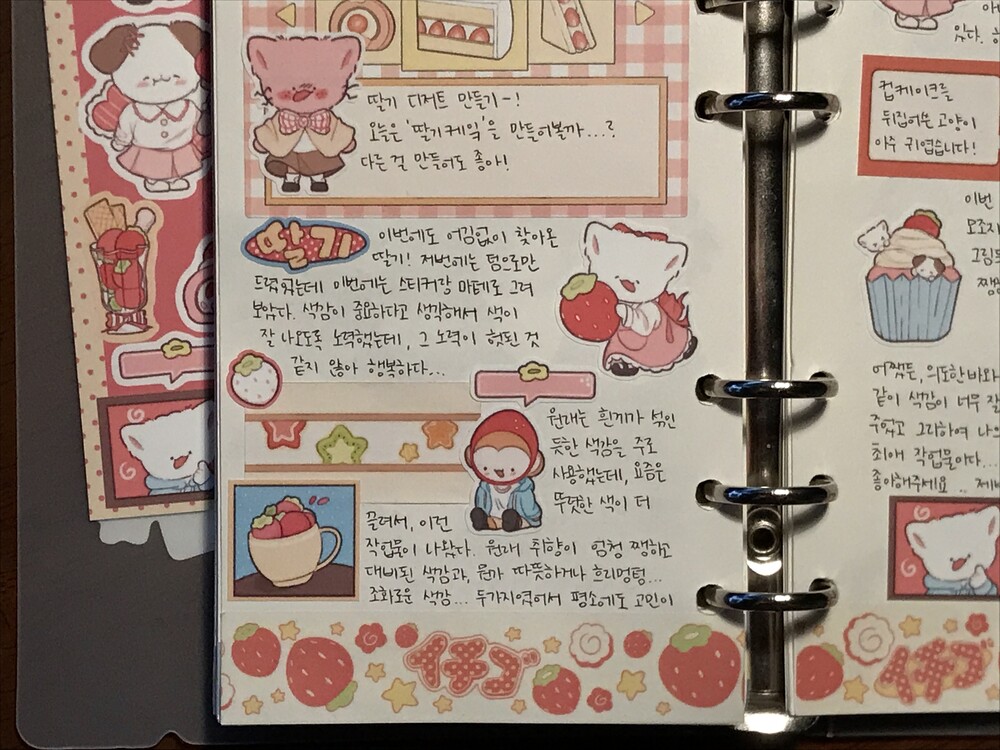 딸기 디저트 만들기~!
오늘은 '딸기케잌'을 만들어볼까...?
다른 걸 만들어도 좋아!
딸기
이번에도 어김없이 찾아온
딸기! 저번에는 덤으로만
드렸었는데 이번에는 스티커랑 마테로 그려
봤다. 색감이 중요하다고 생각해서 색이
잘 나오도록 노력했는데, 그 노력이 헛된 것
같지 않아 행복하다...
원래는 흰끼가 섞인
듯한 색감을 주로
사용했는데, 요즘은
뚜렷한 색이 더
끌려서, 이런
작업물이 나왔다. 원래 취향이 엄청 쨍하고
대비된 색감과, 뭔가 따뜻하거나 흐리멍텅...
조화로운 색감... 두가지여서 평소에도 고민이
イチゴ
있다.
컵케이크를
뒤집어쓴 고양이
아주 귀엽습니다!
이번
모조지
그림
쨍
어쨌든, 의도한바와
같이 색감이 너무 잘
주었고 그리하여 나의
최애 작업물이다...
좋아해주세요..
イチゴ